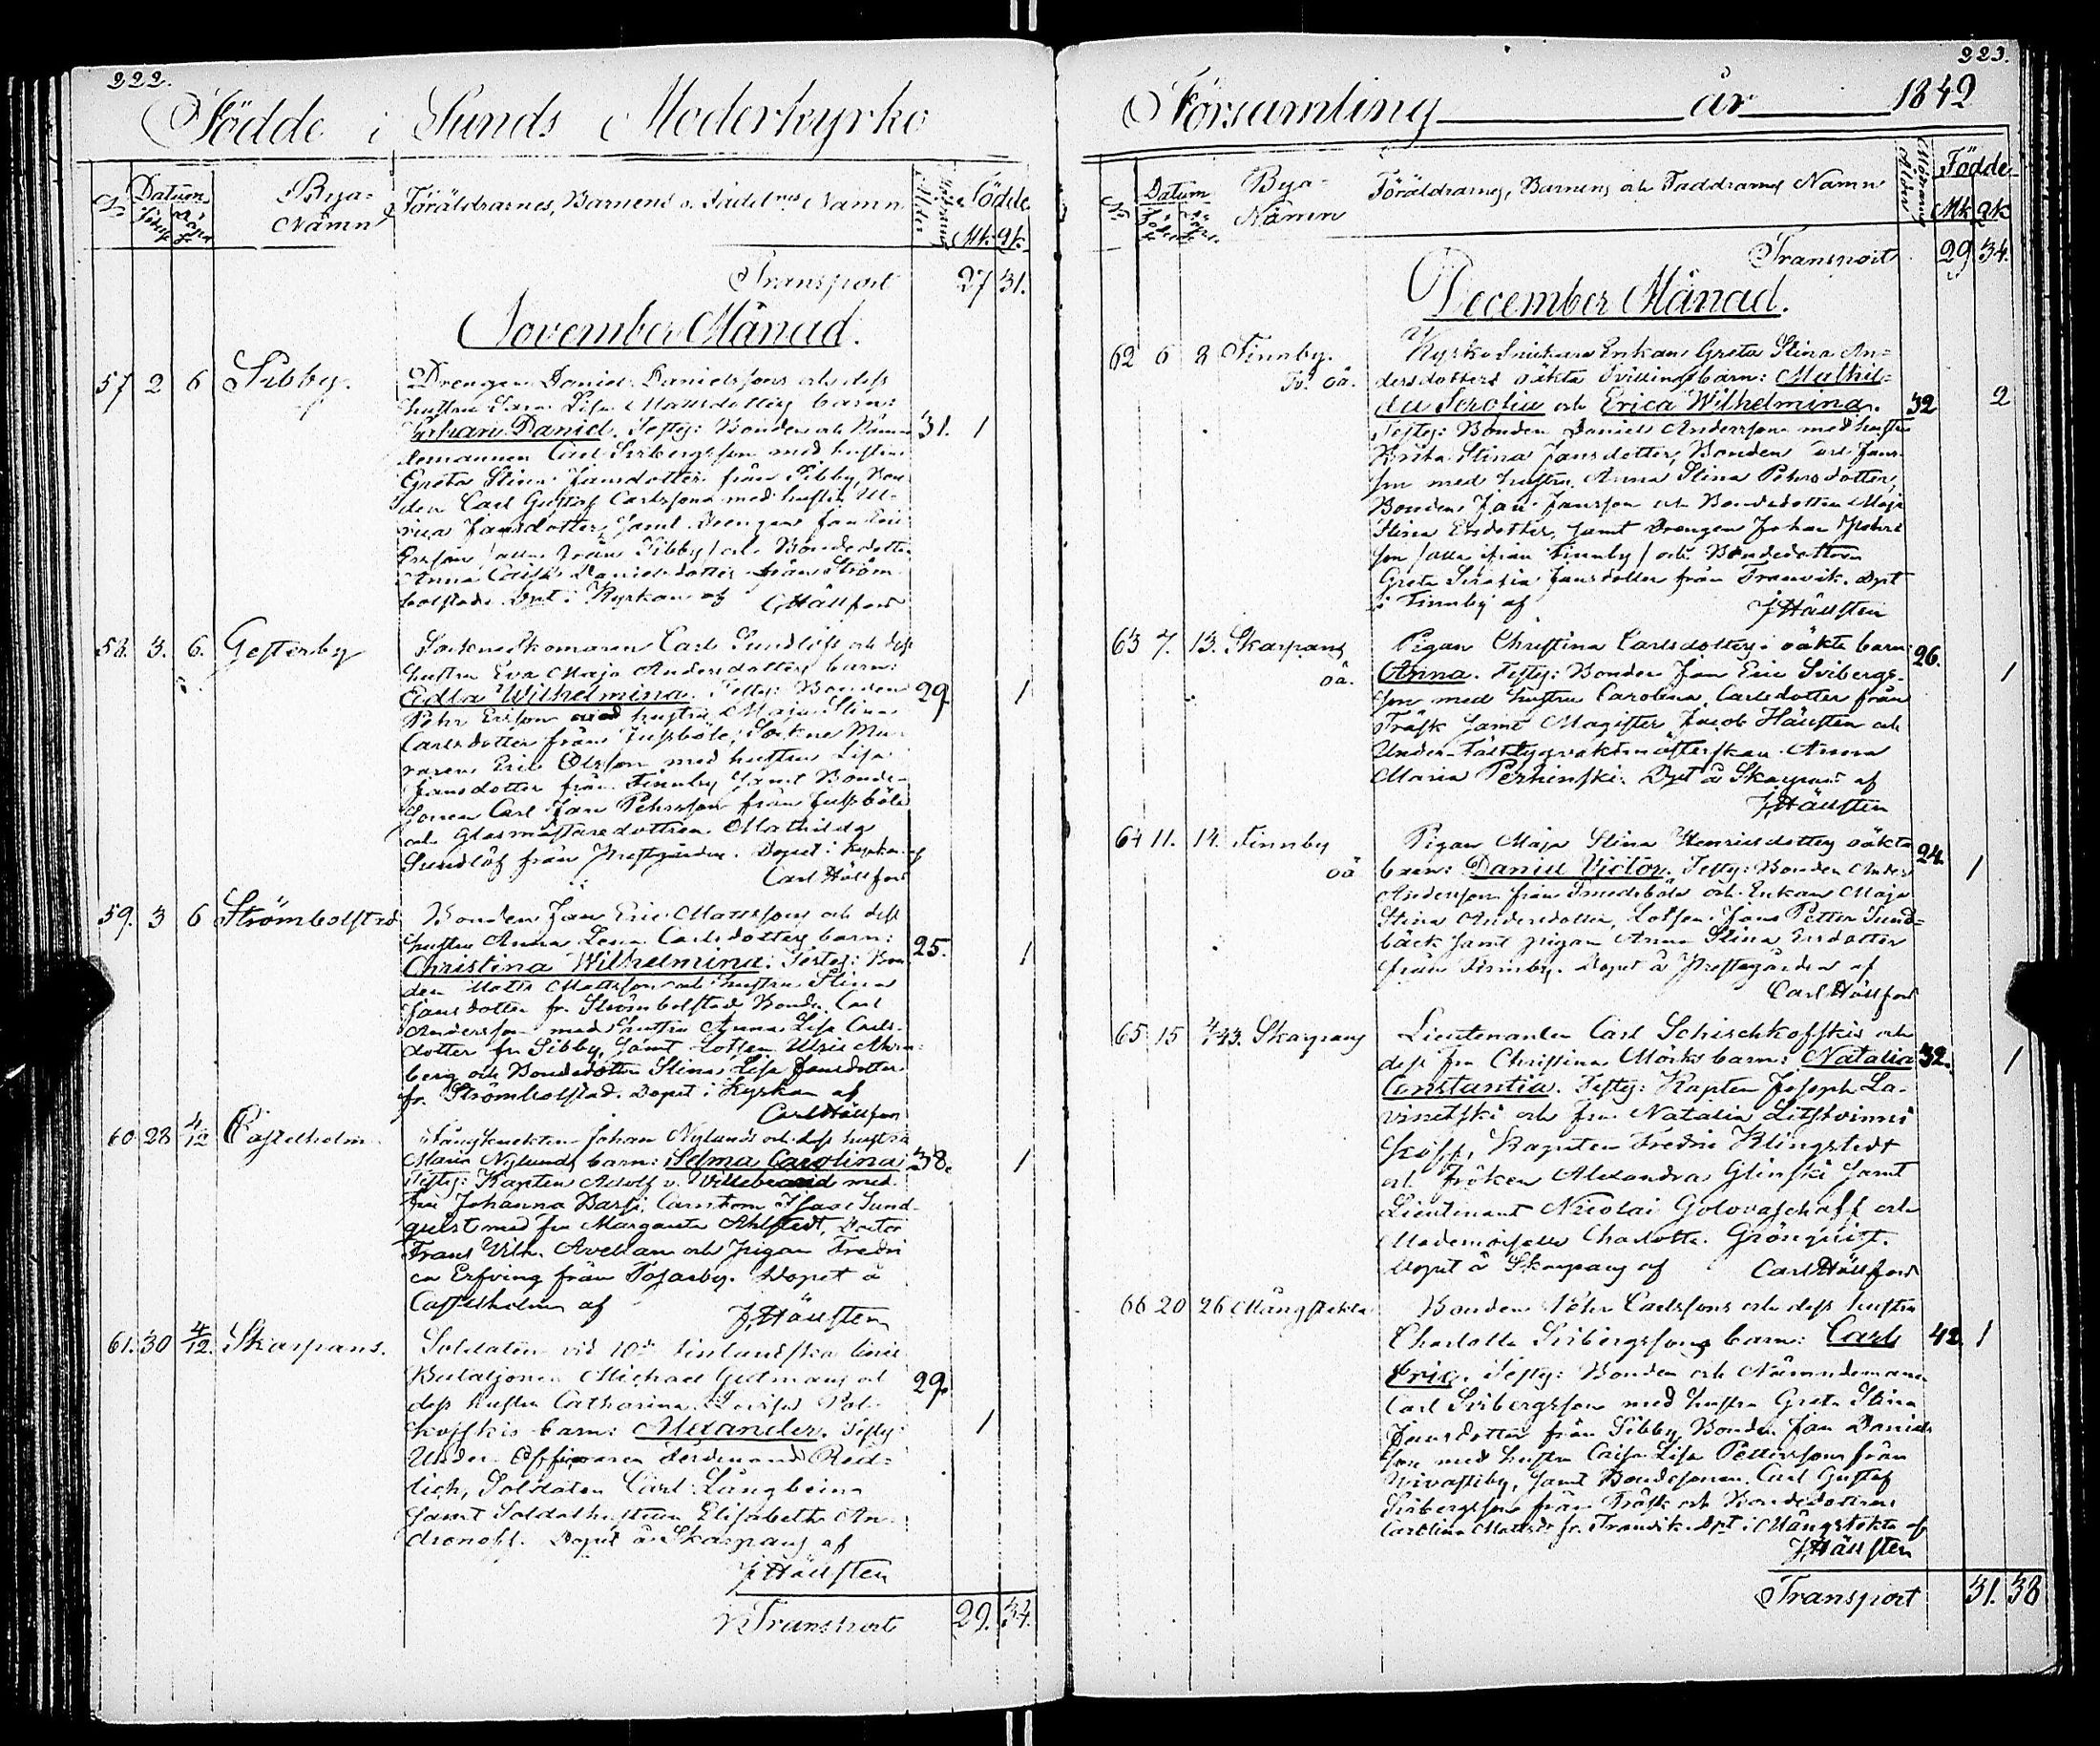 222.
Födde i Sunds Moderkyrko
No Datum Bya- Föräldrarnes, Barnens o. Fadd:nes Namn Födde
Född Döpt Namn Mk. Qk.
Transport 27 31.
November Månad.
57 2 6 Sibby. Drengen Daniel Danielssons och dess
hustru Lisa Mattsdotters barn:
Johan Daniel. Testes: Bonden och Nämn- 31. 1
demannen Carl Sirbergsson med hustru
Greta Stina Jansdotter från Sibby, Bon-
den Carl Gustaf Carlsson med hustru Ul-
rica Jansdotter, samt Drengen Jan Eric
Ersson /alla från Sibby/ och Bondedottren
Anna Danielsdotter från Ström-
bolstad. Dpt i Kyrkan af C Hällfors
58. 3. 6. Gesterby Carl Sundlöfs och dess
hustru Eva Maja Andersdotters barn:
Edla Wilhelmina. Testes: Bonden 29. 1
Pehr Ersson med hustru Maja Stina
Carlsdotter från Jussböle, Sockne Mu-
raren Eric Olsson med hustru Lisa
Jansdotter från Finnby samt Bonde-
sonen Carl Jan Pehrsson från Jussböle
och Glasmästaredottren Mathilda
Sundlöf från Prestgården. Döpet i Kyrkan af
Carl Hällfors
59. 3 6 Strömbolstad Bonden Jan Eric Mattssons och dess
hustru Anna Lena Carlsdotters barn: 25.
Christina Wilhelmina. Testes: Bon- 1
den Matts Mattsson och hustru Stina
Jansdotter fr. Strömbolstad Bonden Carl
Andersson med hustru Anna Lisa Carls-
dotter fr Sibby, samt Lotsen Ulric
berg och Bondedottren Stina Lisa Jansdotter
fr. Strömbolstad. Döpet i Kyrkan af
Carl Hällfors
60. 28 4/12 Castelholm Fångknekten Johan Nylunds och dess hustru
Maria Nylunds barn: Selma Carolina: 38. 1
Testes: Kapten Adolf v. Willebrand med
fru Johanna Isaac Sund-
quist med fru Margareta Ahlstedt, Doctor
Frans Wilh. Avellan och pigan Fredri-
ca Erfving från Tosarby. Döpet å
Castelholm af J. Hällsten
61. 30 4/12. Skarpans. Soldaten vid 10de Finlandska Linie
Bataljonen Michael Gutmans och 29.
dess hustru Catharina
koffskis barn: Alexander. Testes: 1
Under Officeraren Ferdinand Red-
lich, Soldaten Carl Långbein
samt Soldathustrun Elisabeth An-
dronoff. Döpet å Skarpans af
J. Hällsten
Transport 29. 34.
223.
Församling år 1842
No Datum Bya- Föräldrarnes, Barnens och Faddrarnes Namn Mödrarnas Ålder Födde
Namn Mk Qk
Transport 29 34.
December Månad.
62 6 8 Finnby. Kyrko Enkan Greta Stina An-
Tv. oä. dersdotters oäkta Tvillingsbarn: Mathil-
da Serolia och Erica Wilhelmina. 32 2
Testes: Bonden Daniel Andersson med hustru
Brita Stina Jansdotter, Bonden Jans-
son med hustru Anna Stina Pehrsdotter,
Bonden Jan Jansson och Bondedottren Maja
Stina Ersdotter, samt Drengen Johan Pehrs-
son /alla ifrån Finnby/ och Bondedottren
Greta Jansdotter från Tranvik. Dpt
i Finnby af J. Hällsten
63 7. 13. Skarpans Pigan Christina Carlsdotters oäkta barn: 26.
oä. Anna. Testes: Bonden Jan Eric Sirbergs- 1
son med hustru Carolina Carlsdotter från
Träsk samt Magister Jacob Hällsten och
Under-Fälttygvaktmästerskan Anna
Maria Perhinski. Dpt å Skarpans af
J. Hällsten
64 11. 14. Finnby Pigan Maja Stina Henricsdotters oäkta 24.
oä barn: Daniel Victor. Testes: Bonden Anders 1
Andersson från Smedsböle och Enkan Maja
Stina Andersdotter, Lotsen Jans Petter Sund-
bäck samt pigan Anna Stina Ersdotter
från Finnby. Döpet å Prestegården af
Carl Hällfors
65 15 4/1 43. Skarpans Lieutenanten Carl Schischkoffskis och
dess fru Christina Mörks barn: Natalia 32. 1
Constantia. Testes: Kapten Joseph La-
vinetski och fru Natalia Litstvinni-
koff, Kapten Fredric Klingstedt
och Fröken Alexandra Glinski samt
Lieutenant Nicolai Golovaschoff och
Mademoiselle Charlotta Grönquist.
Döpet å Skarpans af Carl Hällfors
66 20 26 Mångstekta Bonden Pehr Carlssons och dess hustru
Charlotta Sirbergssons barn: Carl 42. 1
Eric. Testes: Bonden och Nämndemannen
Carl Sirbergsson med hustru Greta Stina
Jansdotter från Sibby, Bonden Jan Daniels-
son med hustru Caisa Lisa Pettersson från
Hivasteby, samt Bondesonen Carl Gustaf
Sirbergsson från Träsk och Bondedottren
Carolina Mattsdr fr. Tranvik. Dpt i Mångstekta af
J. Hällsten
Transport 31. 38